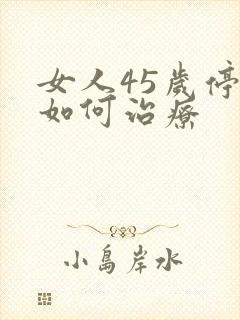 女人45岁停
如何治疗
小島岸水